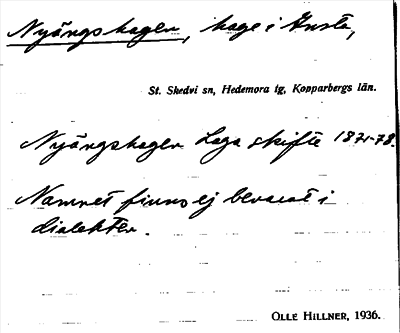 Nyängshagen, hage i Gusta,
St. Skedvi sn, Hedemora tg, Kopparbergs län.
Nyängshagen Laga skifte 1871-78.
Namnet finns ej bevarat i
dialekten.
OLLE HILLNER, 1936.